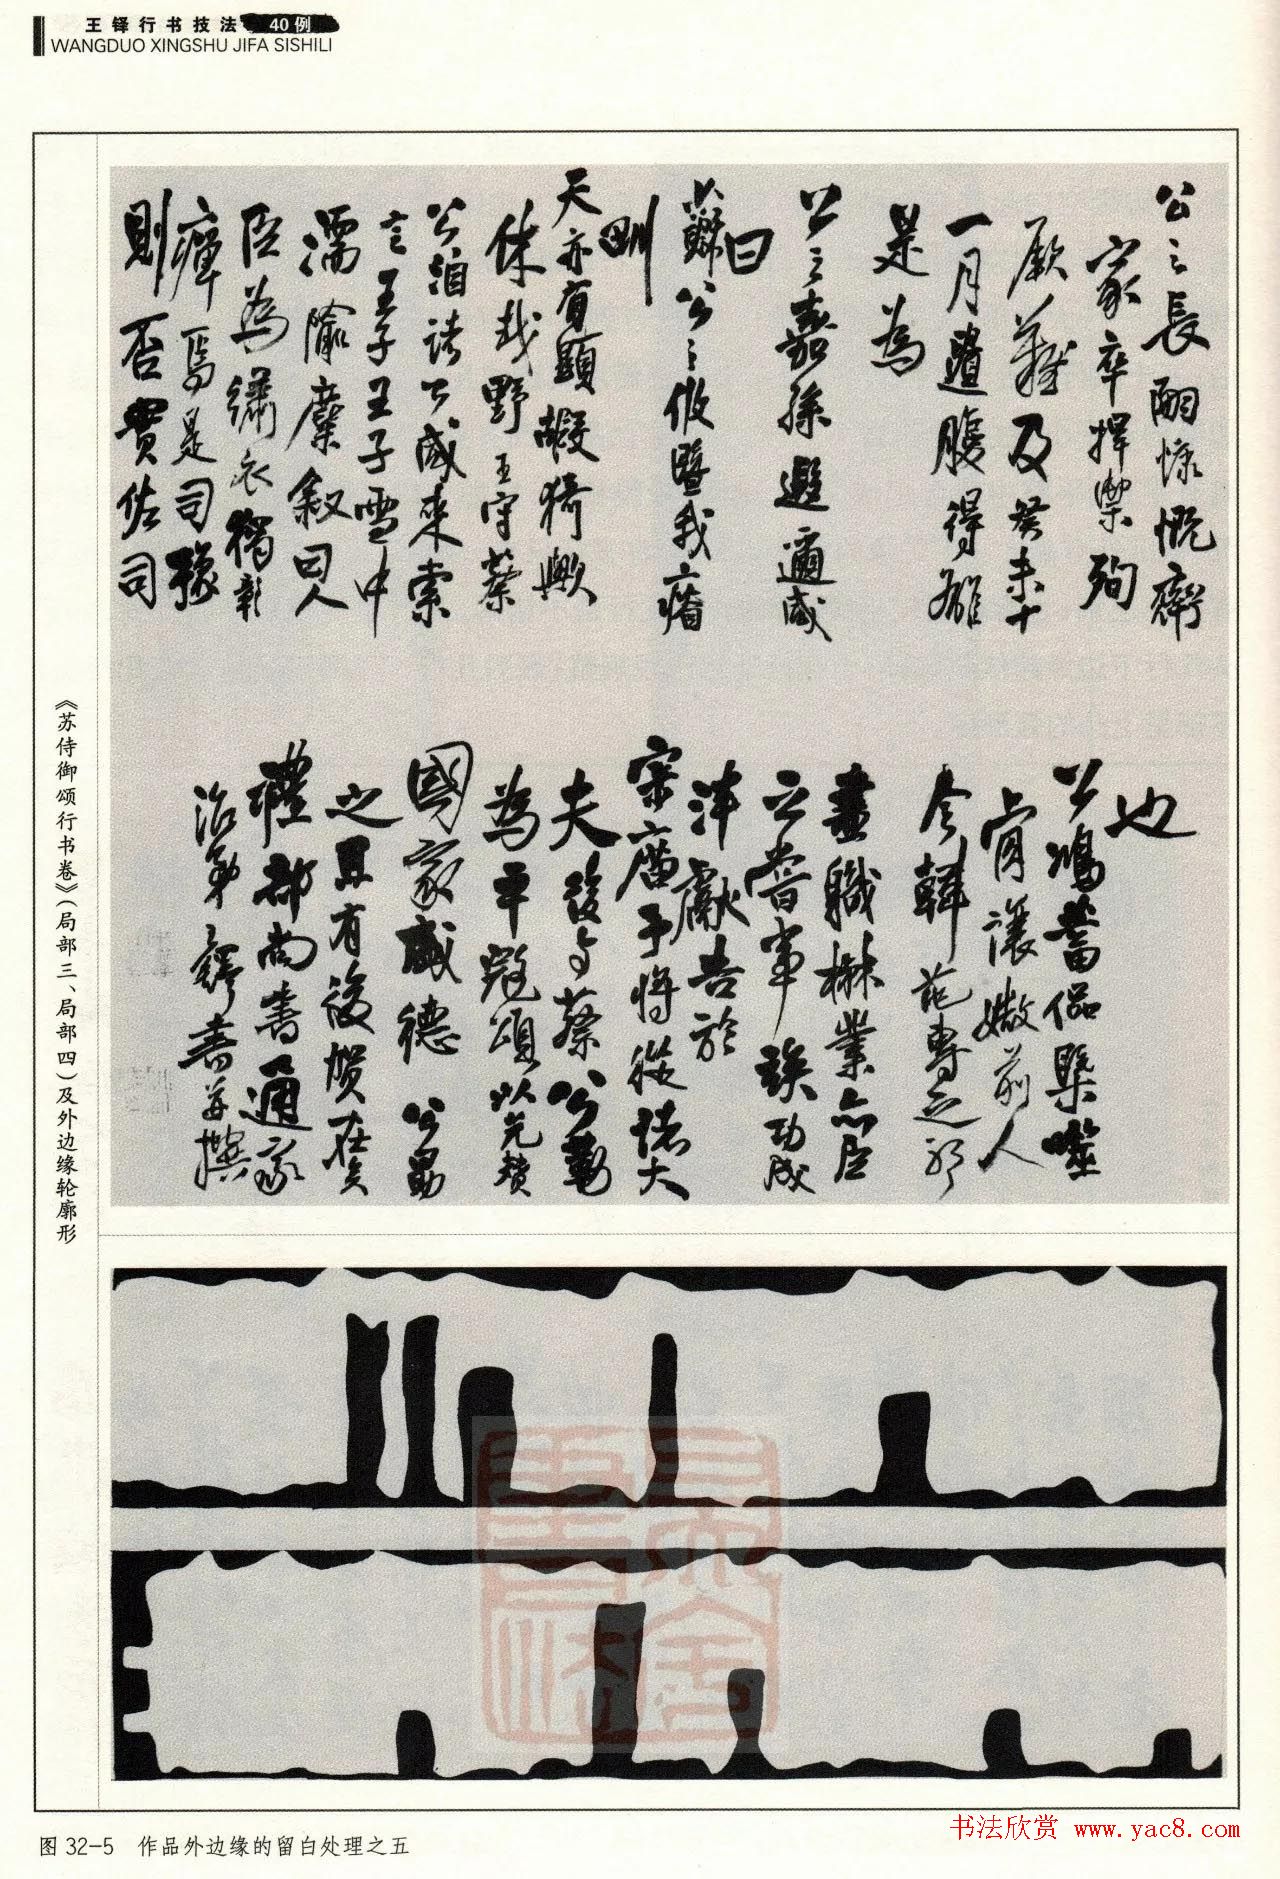 王铎行书技法 40例
WANGDUO XINGSHU JIFA SISHILI
公之長嗣慷慨齊
家卒捍禦殉
厥難及癸未十
一月遺腹得雄
是為
公之嘉孫遐邇咸
曰
蘇公之攸暨我
則
天亦有顯
休哉野王守蔡
公洎諸公咸來索
言王子王子雪中
濡隃麋叙曰人
臣為繡衣獨彰
癉焉是司
則否實佐司
也
公鴻蓄偘槩噬
肯讓媺前人
今韓范專之
盡職楙業亦臣
之嘗事
泮獻告於
宗廟予將從諸大
夫後与蔡公勤
為平寇頌以克贊
國家威德 公勗
之且有後賀在矣
禮部尚書通家
治弟鐸書并撰
《苏侍御颂行书卷》(局部三、局部四)及外边缘轮廓形
图 32-5 作品外边缘的留白处理之五
书法欣赏 www.yac8.com